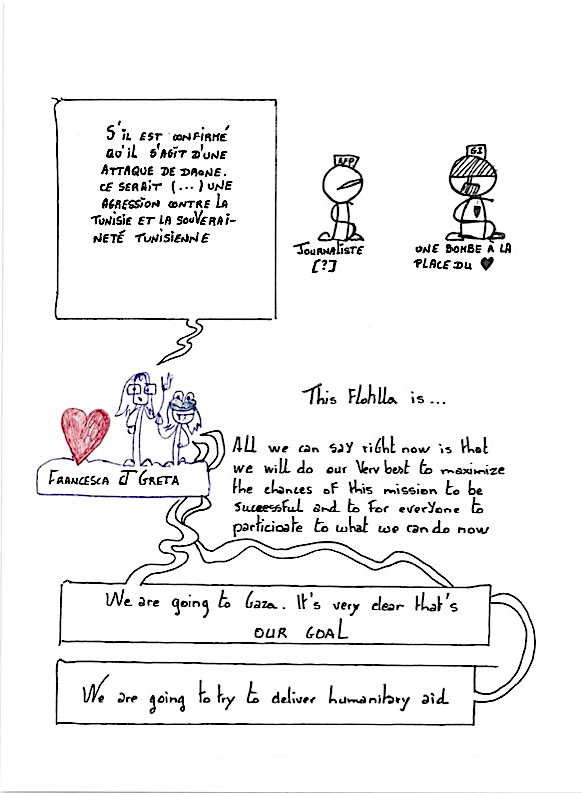 S'IL EST CONFIRMÉ
QU'IL S'AGIT D'UNE
ATTAQUE DE DRONE.
CE SERAIT (...) UNE
AGRESSION CONTRE LA
TUNISIE ET LA SOUVERAI-
NETÉ TUNISIENNE
AFP
JOURNALISTE
[?]
GI
UNE BOMBE À LA
PLACE DU ♥
FRANCESCA ET GRETA
This Flotilla is ...
All we can say right now is that
we will do our Very best to maximize
the chances of this mission to be
successful and to for everyone to
participate to what we can do now
We are going to Gaza. It's very clear that's
OUR GOAL
We are going to try to deliver humanitary aid